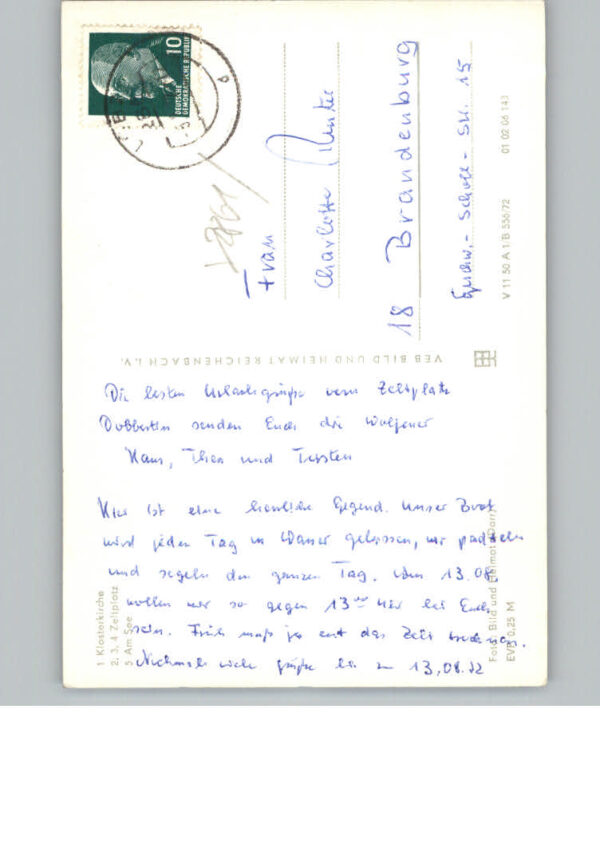 Die besten Urlaubsgrüße vom Zeltplatz
Dobbertin senden Euch die Wolfener
Hans, Thea und Torsten
Hier ist eine herrliche Gegend. Unser Boot
wird jeden Tag in Wasser gelassen, wir paddeln
und segeln den ganzen Tag. Am 13.08
wollen wir so gegen 13⁰⁰ Uhr bei Euch
sein. Früh muß ja erst das Zelt trocknen.
Nochmals viele Grüße bis zum 13.08.72
Frau
Charlotte
18 Brandenburg
Geschw.-Scholl-Str. 15
10
DEUTSCHE
DEMOKRATISCHE REPUBLIK
VEB BILD UND HEIMAT REICHENBACH I.V.
V 11 50 A 1/B 556/72 01 02 06 143
1 Klosterkirche
2, 3, 4 Zeltplatz
5 Am See
Foto: Bild und Heimat
EVP 0,25 M